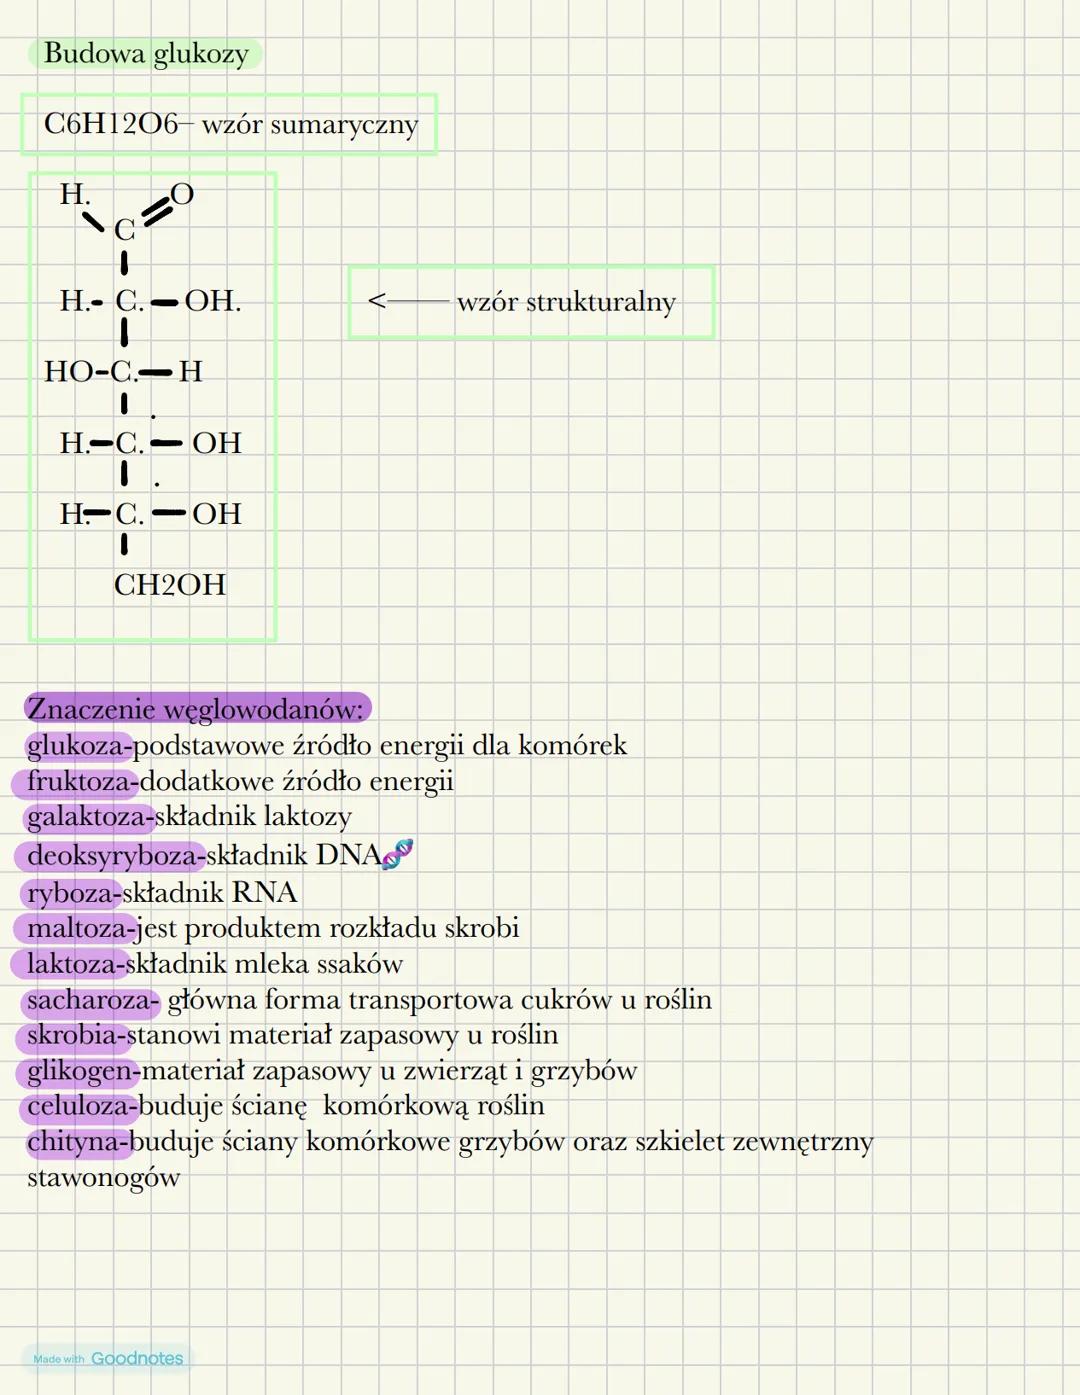 Budowa glukozy
C6H12O6– wzór sumaryczny
H. O
C
H.- C. — OH.
<——— wzór strukturalny
HO-C.— H
H.—C. — OH
H.—C. — OH
CH2OH
Znaczenie węglowodanów:
glukoza-podstawowe źródło energii dla komórek
fruktoza-dodatkowe źródło energii
galaktoza-składnik laktozy
deoksyryboza-składnik DNA🧬
ryboza-składnik RNA
maltoza-jest produktem rozkładu skrobi
laktoza-składnik mleka ssaków
sacharoza- główna forma transportowa cukrów u roślin
skrobia-stanowi materiał zapasowy u roślin
glikogen-materiał zapasowy u zwierząt i grzybów
celuloza-buduje ścianę  komórkową roślin
chityna-buduje ściany komórkowe grzybów oraz szkielet zewnętrzny
stawonogów
Made with Goodnotes